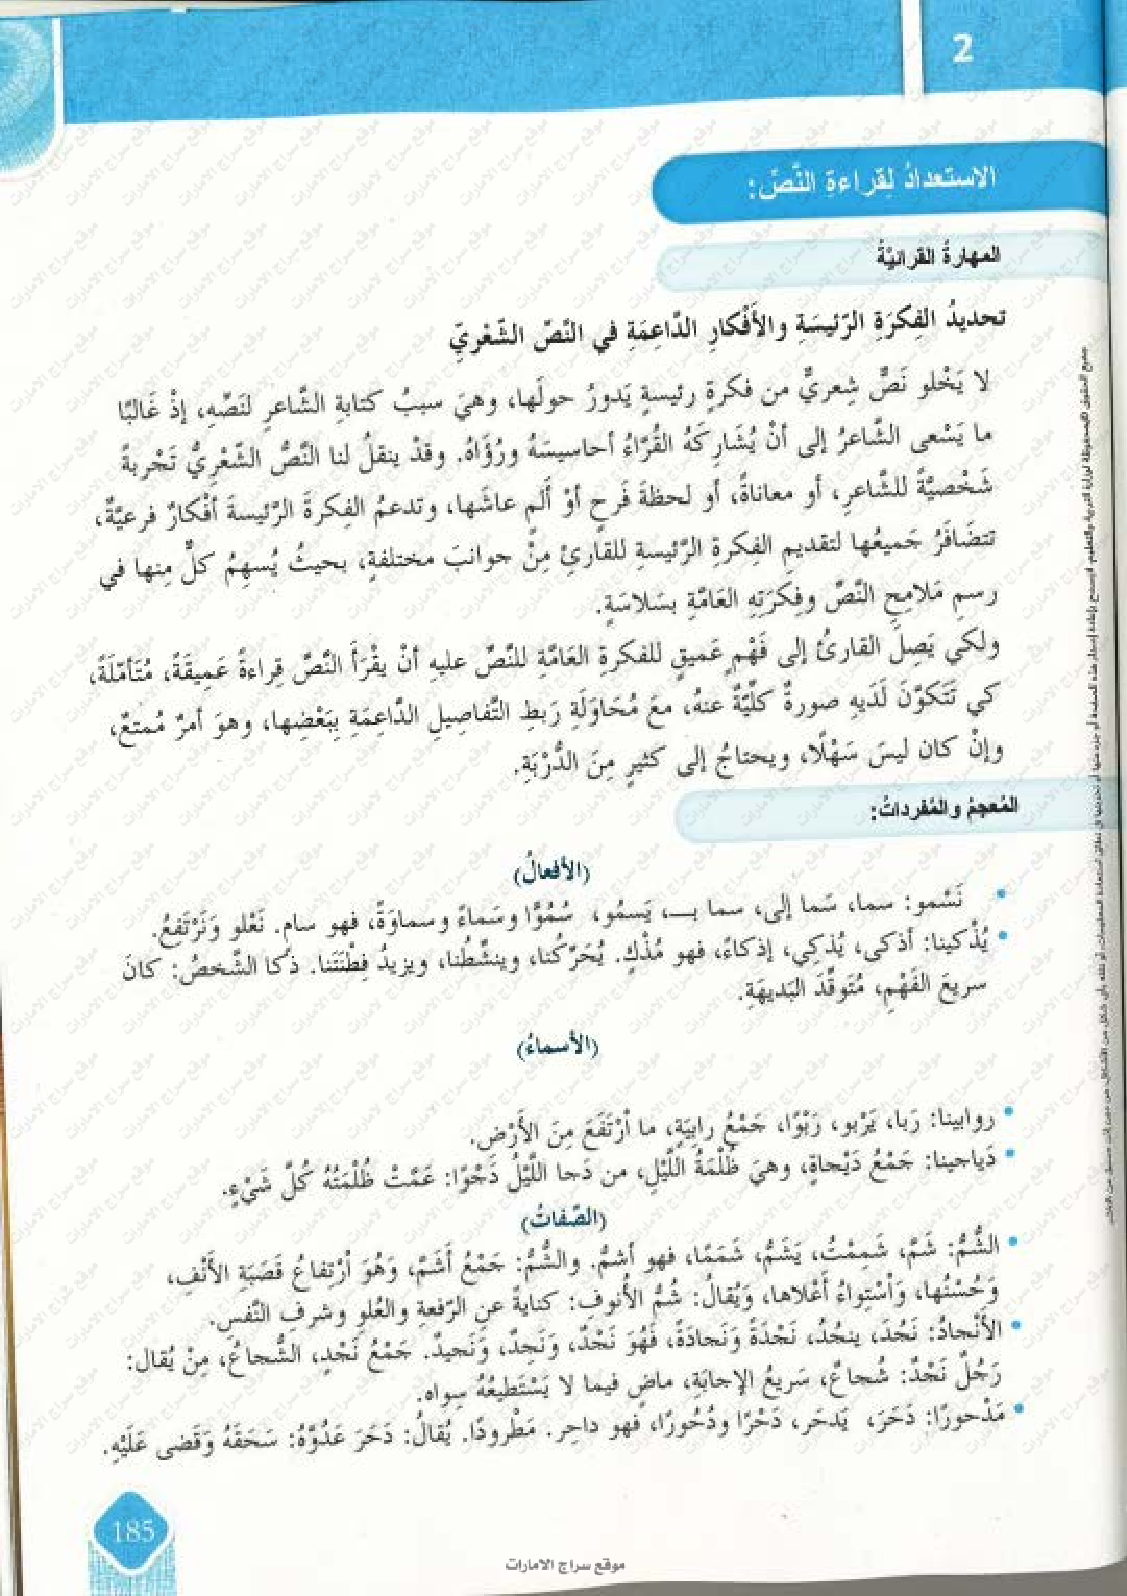 2
الاستعدادُ لِقراءةِ النَّصِّ:
المهارةُ القرائيَّةُ
تحديدُ الفِكرَةِ الرَّئيسَةِ والأَفْكارِ الدَّاعِمَةِ في النَّصِّ الشِّعْرِيِّ
لا يَخْلو نَصٌّ شِعريٌّ من فكرةٍ رئيسةٍ يَدورُ حولَها، وهيَ سببُ كتابةِ الشَّاعرِ لنَصِّهِ، إذْ غَالبًا
ما يَسْعى الشَّاعرُ إلى أنْ يُشَارِكَهُ القُرَّاءُ أحاسيسَهُ ورُؤَاهُ. وقدْ ينقلُ لنا النَّصُّ الشِّعْرِيُّ تَجْربةً
شَخْصيَّةً للشَّاعرِ، أو معاناةً، أو لحظةَ فَرحٍ أوْ ألمٍ عاشَها، وتدعمُ الفِكرةَ الرَّئيسةَ أفْكارٌ فرعيَّةٌ،
تتضَافَرُ جَميعُها لتقديمِ الفِكرةِ الرَّئيسةِ للقارئِ مِنْ جوانبَ مختلفةٍ، بحيثُ يُسهِمُ كلٌّ مِنها في
رسمِ مَلامِحِ النَّصِّ وفِكرَتِهِ العَامَّةِ بسَلاسَةٍ.
ولكي يَصِلَ القارئُ إلى فَهْمٍ عَميقٍ للفكرةِ العَامَّةِ للنَّصِّ عليهِ أنْ يقْرَأَ النَّصَّ قِراءةً عَمِيقَةً، مُتَأمِّلَةً،
كي تَتَكوَّنَ لَدَيهِ صورةٌ كلِّيَّةٌ عنهُ، معَ مُحَاوَلَةِ رَبطِ التَّفاصيلِ الدَّاعِمَةِ بِبَعْضِها، وهوَ أمرٌ مُمتعٌ،
وإنْ كان ليسَ سَهْلًا، ويحتاجُ إلى كثيرٍ مِنَ الدُّرْبَةِ.
المُعجمُ والمُفرداتُ:
(الأفعالُ)
• نَسْمو: سما، سَما إلى، سما بـــ، يَسمُو، سُمُوًّا وسَماءً وسماوَةً، فهو سامٍ. نَعْلو وَنَرْتَفِعُ.
• يُذْكينا: أذكى، يُذكِي، إذكاءً، فهو مُذْكٍ. يُحَرِّكُنا، وينشِّطُنا، ويزيدُ فِطْنَتَنا. ذَكا الشَّخصُ: كانَ
سريعَ الفَهْمِ، مُتَوقِّدَ البَديهَةِ.
(الأسماءُ)
• روابينا: رَبا، يَرْبو، رَبْوًا، جَمْعُ رابِيَةٍ، ما ارْتَفَعَ مِنَ الأَرْضِ.
• دَياجينا: جَمْعُ دَيْجاةٍ، وهيَ ظُلْمَةُ اللَّيْلِ، من دَجا اللَّيْلُ دَجْوًا: عَمَّتْ ظُلْمَتُهُ كُلَّ شَيْءٍ.
(الصِّفاتُ)
• الشُّمُّ: شَمَّ، شَمِمْتُ، يَشَمُّ، شَمَمًا، فهو أشمُّ. والشُّمُّ: جَمْعُ أَشَمَّ، وَهُوَ ارْتِفاعُ قَصَبَةِ الأَنْفِ،
وَحُسْنُها، وَاسْتِواءُ أَعْلاها، وَيُقالُ: شُمُّ الأُنوفِ: كنايةً عنِ الرِّفعةِ والعُلوِ وشرفِ النَّفسِ.
• الأَنْجادُ: نَجُدَ، ينجُدُ، نَجْدَةً وَنَجادَةً، فَهُوَ نَجْدٌ، وَنَجِدٌ، وَنَجيدٌ. جَمْعُ نَجْدٍ، الشُّجاعُ، مِنْ يُقال:
رَجُلٌ نَجْدٌ: شُجاعٌ، سَريعُ الإجابَةِ، ماضٍ فيما لا يَسْتَطيعُهُ سِواه.
• مَدْحورًا: دَحَرَ، يَدحَر، دَحْرًا ودُحُورًا، فهو داحِر. مَطْرودًا. يُقالُ: دَحَرَ عَدُوَّهُ: سَحَقَهُ وَقَضى عَلَيْهِ.
185
موقع سراج الامارات